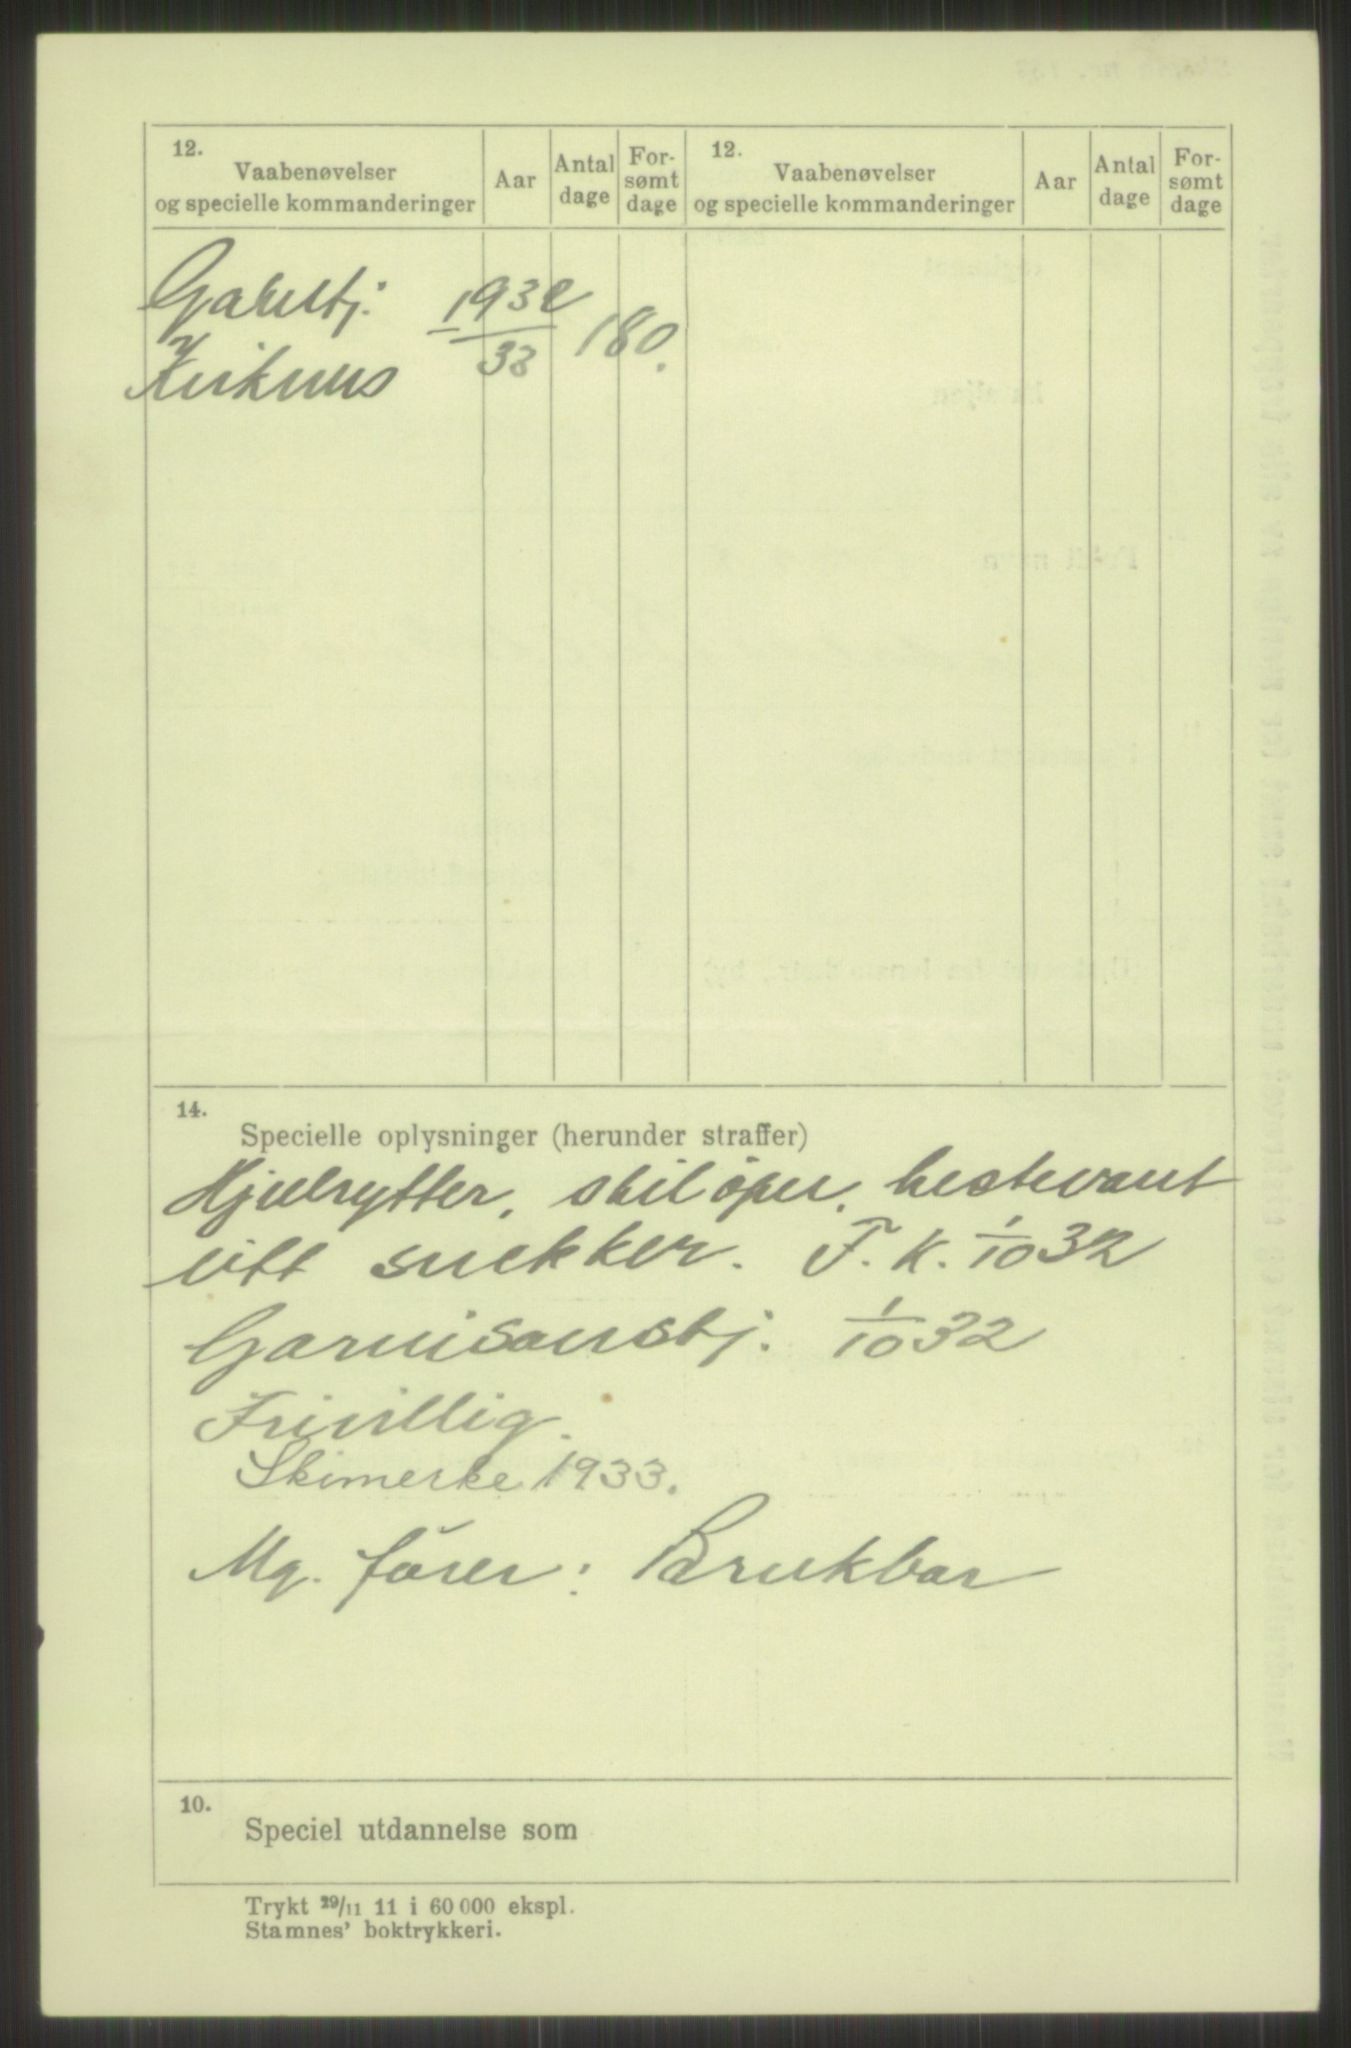 12.
Vaabenøvelser
og specielle kommanderinger
Aar
Antal
dage
For-
sømt
dage
12.
Vaabenøvelser
og specielle kommanderinger
Aar
Antal
dage
For-
sømt
dage
1932
33
180.
Kirkenes
14.
Specielle oplysninger (herunder straffer)
Hjulrytter, skilöper, hestevant
litt snekker. F. K. 1/10 32
Garnisonstj. 1/10 32
Frivillig.
Skimerke 1933.
Mg. förer: Brukbar
10.
Speciel utdannelse som
Trykt 29/11 11 i 60 000 ekspl.
Stamnes' boktrykkeri.